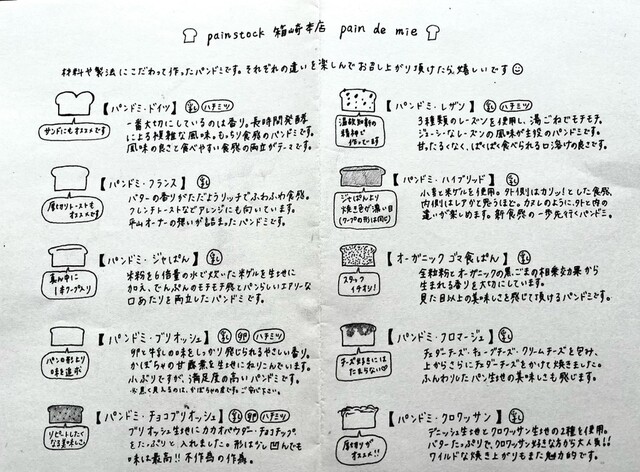 painstock 箱崎本店 pain de mie
材料や製法にこだわって作ったパンドミです。それぞれの違いを楽しんでお召し上がり頂けたら嬉しいです
【パンドミ・ドイツ】 乳 ハチミツ
サンドにもオススメです
一番大切にしているのは香り。長時間発酵
による複雑な風味。もっちり食感のパンドミです。
風味の良さと食べやすい食感の両立がテーマです。
【パンドミ・フランス】 乳
厚切りトーストもオススメです
バターの香りがただようリッチでふわふわ食感。
フレンチトーストなどアレンジにも向いています。
平山オーナーの想いが詰まったパンドミです。
【パンドミ・ジャぱん】 乳
真ん中に
1本ワープ入り
米粉を6倍量の水で炊いた米ゲルを生地に
加え、でんぷんのモチモチ感とパンらしいエアリーな
口あたりを両立したパンドミです。
【パンドミ・ブリオッシュ】 乳 卵 ハチミツ
パンの形より
味を追求
卵と牛乳の味をしっかり感じられるやさしい香り。
かぼちゃの甘露煮を生地に練りこんでいます。
小ぶりですが、満足度の高いパンドミです。
※黒く見えるのは、かぼちゃの皮です。ご安心下さい。
【パンドミ・チョコブリオッシュ】 乳 卵 ハチミツ
リピートしたく
なる美味しさ!
ブリオッシュ生地にカカオパウダー・チョコチップ
をたっぷりと入れました。形は少し凹んでも
味は最高!! 不作為の作為。
【パンドミ・レザン】 乳 ハチミツ
温故知新の
精神で
作ってます
3種類のレーズンを使用し、湯ごねでモチモチ。
ジューシーなレーズンの風味が主役のパンドミです。
甘ったるくなく、ぱくぱく食べられる口溶けの良さです。
【パンドミ・ハイブリッド】 乳
ジャぱんより
焼き色が濃い目
(ワープの形は同じ)
小麦と米ゲルを使用。外側はカリッ!とした食感、
内側はレアかと思うほど。カヌレのように、外と内の
違いが楽しめます。新食感の一歩先行くパンドミ。
【オーガニック ゴマ食ぱん】 乳
スタッフ
イチオシ!
全粒粉とオーガニックの黒ごまの相乗効果から
生まれる香りを大切にしています。
見た目以上の美味しさを感じて頂けるパンドミです。
【パンドミ・クロマージュ】 乳
チーズ好きには
たまらない♡
チェダーチーズ、キューブチーズ・クリームチーズを包み、
上からさらにチェダーチーズをかけて焼きました。
ふんわりしたパン生地の美味しさも感じます。
【パンドミ・クロワッサン】 乳
厚切りが
オススメ!!
デニッシュ生地とクロワッサン生地の2種を使用。
バターたっぷりで、クロワッサン好きな方から大人気!!
ワイルドな焼き上がりもまた魅力的です。